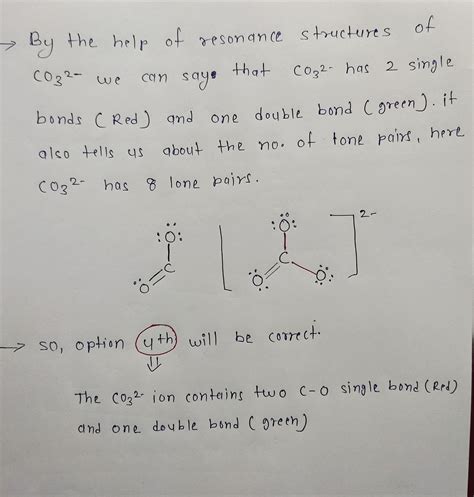 → By the help of resonance structures of
CO₃²⁻ we can say that CO₃²⁻ has 2 single
bonds (Red) and one double bond (green). it
also tells us about the no. of lone pairs, here
CO₃²⁻ has 8 lone pairs.
:Ö: :Ö: 2-
C C
:O :O :O:
→ so, option 4th will be correct.
⇓
The CO₃²⁻ ion contains two C-O single bond (Red)
and one double bond (green)